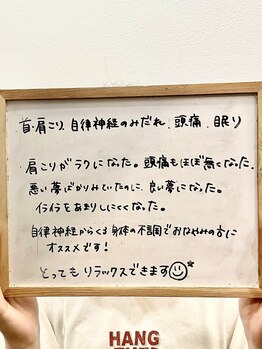 首・肩こり、自律神経のみだれ、頭痛、眠り
肩こりがラクになった。頭痛もほぼ無くなった。
悪い夢ばかりみていたのに、良い夢になった。
イライラをあまりしにくくなった。
自律神経からくる身体の不調でおなやみの方に
オススメです！
とってもリラックスできます
HANG